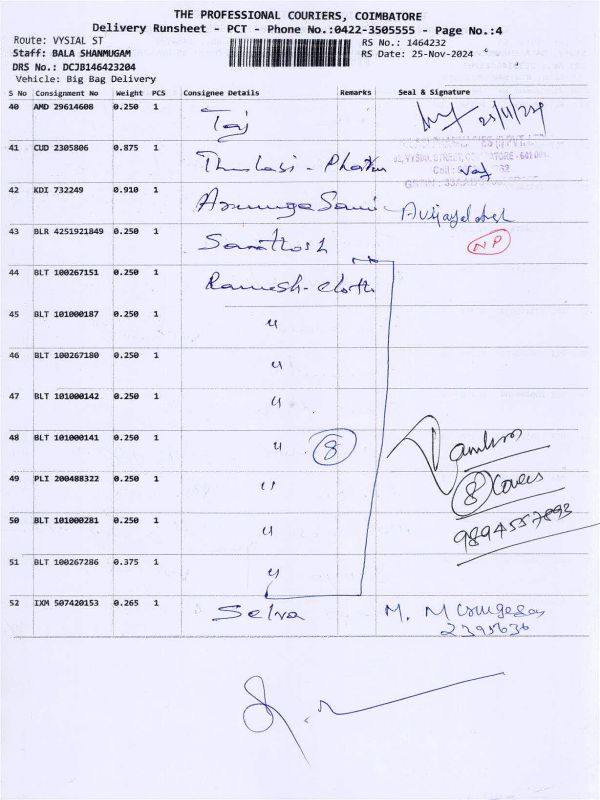 THE PROFESSIONAL COURIERS, COIMBATORE
Delivery Runsheet - PCT - Phone No.:0422-3505555 - Page No.:4
Route: VYSIAL ST
RS No.: 1464232
Staff: BALA SHANMUGAM
RS Date: 25-Nov-2024
DRS No.: DCJB146423204
Vehicle: Big Bag Delivery
S No Consignment No Weight PCS Consignee Details Remarks Seal & Signature
40 AMD 29614608 0.250 1 Taj
41 CUD 2305806 0.875 1 Thulasi - Pharm
42 KDI 732249 0.910 1
43 BLR 4251921849 0.250 1 Santhosh NP
44 BLT 100267151 0.250 1 Ramesh-cloth
45 BLT 101000187 0.250 1 "
46 BLT 100267180 0.250 1 "
47 BLT 101000142 0.250 1 "
48 BLT 101000141 0.250 1 " 8
49 PLI 200488322 0.250 1 "
8 Covers
50 BLT 101000281 0.250 1 "
9894557893
51 BLT 100267286 0.375 1 "
52 IXM 507420153 0.265 1 Selva M. Murugesan
2395636